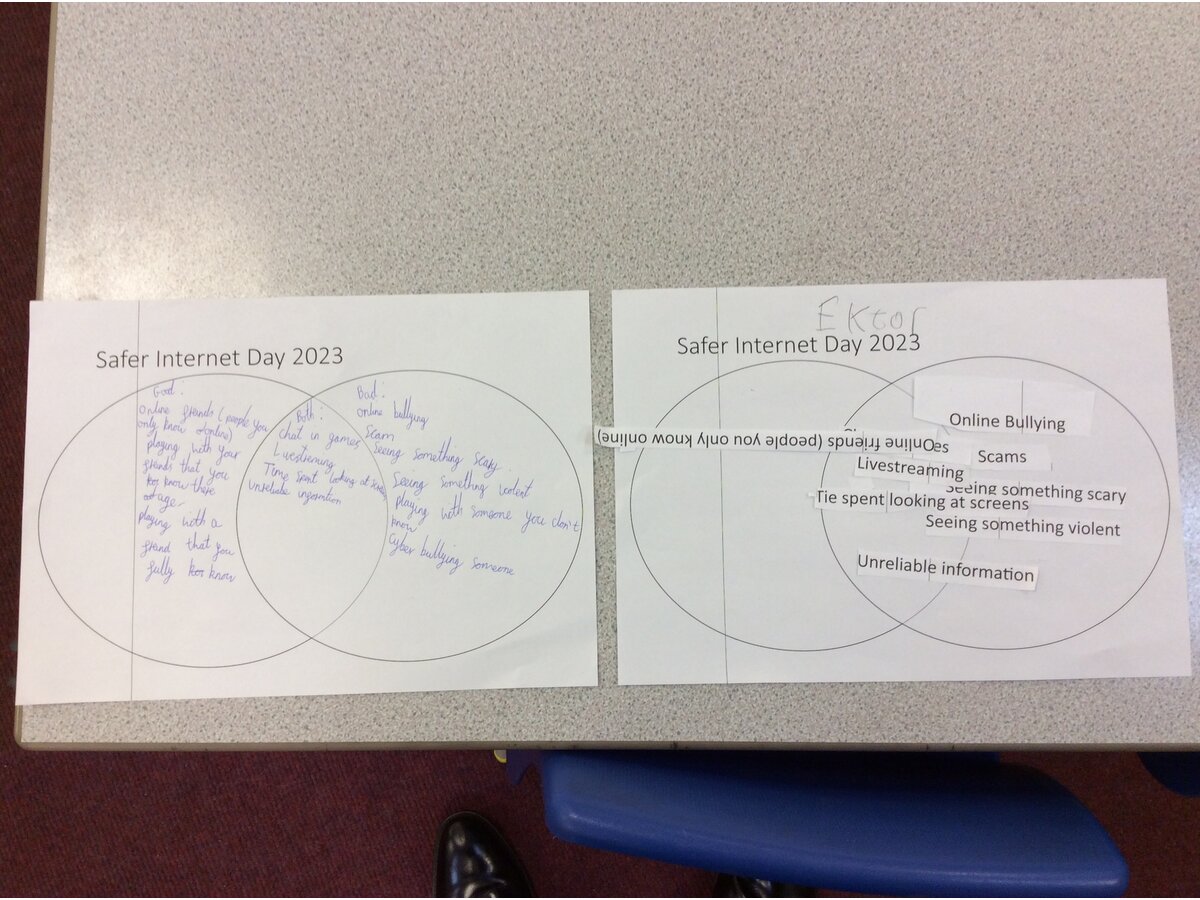 Safer Internet Day 2023
Good:
Online friends (people you
only know online)
playing with your
friends that you
know there
age.
playing with a
friend that you
fully know
Both:
chat in games
Livestreming
Time spent looking at screens
Unreliable information
Bad:
Online bullying
Scam
Seeing something scary.
Seeing something violent
playing with someone you don't
know
Cyber bullying someone
Ektor
Safer Internet Day 2023
Online Bullying
Online friends (people you only know online)
es
Scams
Livestreaming
Seeing something scary
Tie spent looking at screens
Seeing something violent
Unreliable information